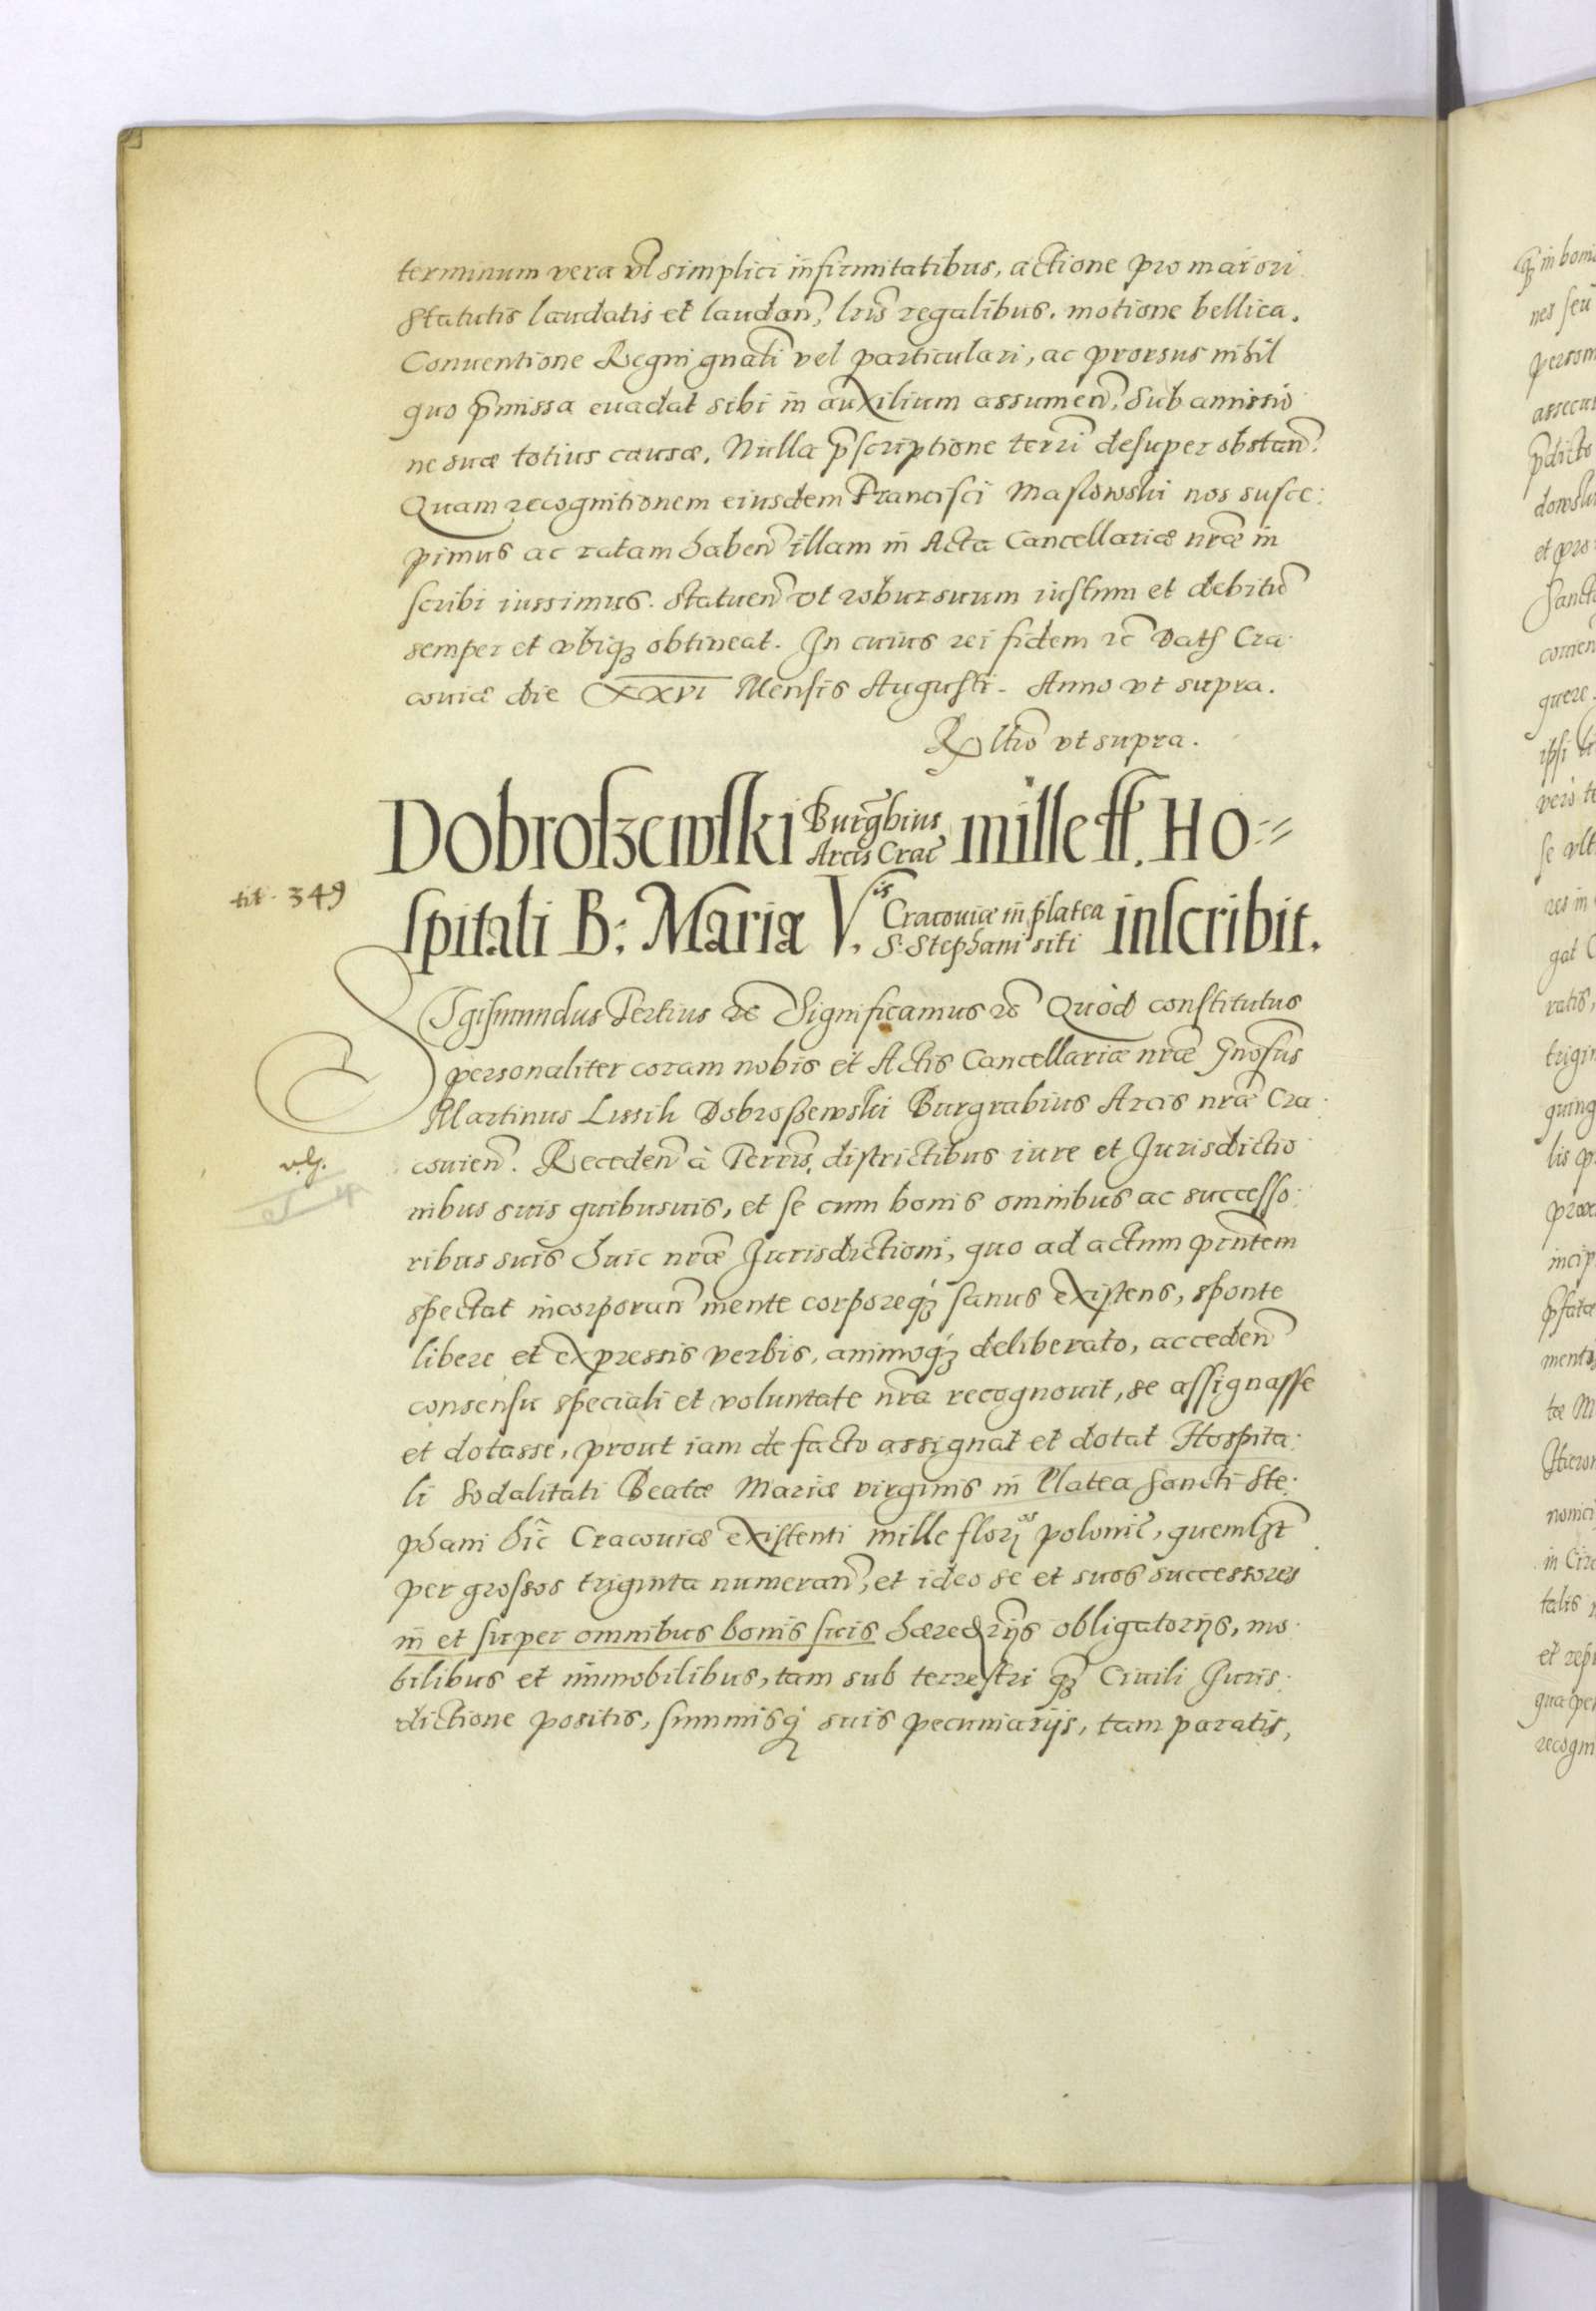 terminum vera vl̃ simplici infirmitatibus, actione pro maiori
Statutis laudatis et laudan̄, lr̄is regalibus. motione bellica.
Conuentione Regni gñali vel particulari, ac prorsus nihil
quo p̄missa euadat sibi in auxilium assumen̄. Sub amissio
ne suæ totius causæ. Nulla p̄scriptione terr̄i desuper obstan̄.
Quam recognitionem eiusdem Francisci Maslowski nos susce:
pimus ac ratam haben̄ illam in Acta Cancellariæ nr̄æ in
scribi iussimus. Statuen̄ vt robur suum iustum et debitū
semper et vbiqȝ obtineat. In cuius rei fidem rc̄ Datȝ Cra
couiæ die XXVI Mensis Augusti. Anno vt supra.
Rltio vt supra.
Dobroszewski Burg̃bius Arcis Crac̄ mille ff. Ho=
spitali B: Mariæ V.is Cracouiæ in platea S: Stephani siti inscribit.
tit. 349
Sigismundus Tertius rc̄ Significamus rc̄ Quòd constitutus
personaliter coram nobis et Actis Cancellariæ nr̄æ Gnosus
Martinus Lissih Dobroszewski Burgrabius Arcis nr̄æ Cra
couien̄. Receden̄ à Terris, districtibus iure et Jurisdictio
nibus suis quibusuis, et se cum bonis omnibus ac successo:
ribus suis huic nr̄æ Jurisdictioni, quo ad actum pr̄ntem
spectat incorporan̄ mente corporeqȝ sanus existens, sponte
libere et expressis verbis, animoqȝ deliberato, acceden̄
consensu speciali et voluntate nr̄a recognouit, se assignasse
et dotasse, prout iam de facto assignat et dotat Hospita:
li Sodalitati Beatæ Mariæ virginis in Platea Sancti Ste:
phani hic Cracouiæ existenti mille flor̄os polonic̄, quemlȝt
per grossos triginta numeran̄, et ideo se et suos successores
in et super omnibus bonis suis hæredrijs obligatorijs, mo
bilibus et immobilibus, tam sub terrestri qȝ Ciuili Juris:
dictione positis, summisqȝ suis pecuniarijs, tam paratis,